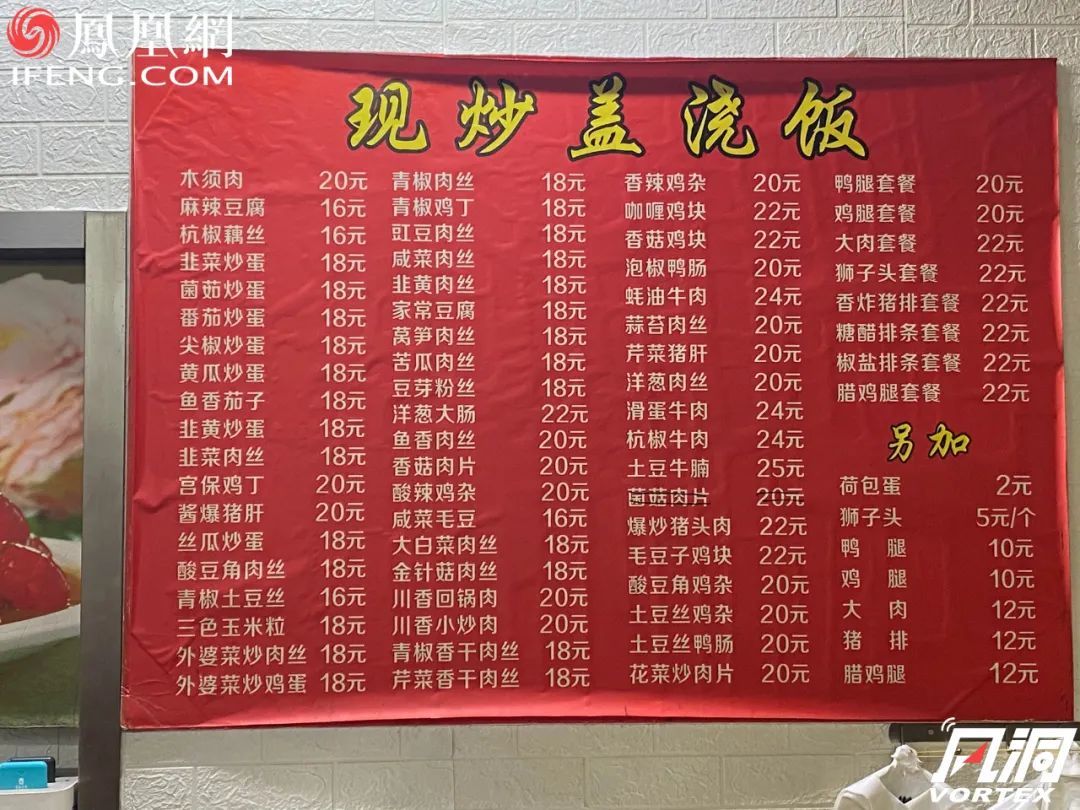 鳳凰網
IFENG.COM
现炒盖浇饭
木须肉 20元
麻辣豆腐 16元
杭椒藕丝 16元
韭菜炒蛋 18元
菌茹炒蛋 18元
番茄炒蛋 18元
尖椒炒蛋 18元
黄瓜炒蛋 18元
鱼香茄子 18元
韭黄炒蛋 18元
韭菜肉丝 18元
宫保鸡丁 20元
酱爆猪肝 20元
丝瓜炒蛋 18元
酸豆角肉丝 18元
青椒土豆丝 16元
三色玉米粒 18元
外婆菜炒肉丝 18元
外婆菜炒鸡蛋 18元
青椒肉丝 18元
青椒鸡丁 18元
豇豆肉丝 18元
咸菜肉丝 18元
韭黄肉丝 18元
家常豆腐 18元
莴笋肉丝 18元
苦瓜肉丝 18元
豆芽粉丝 18元
洋葱大肠 22元
鱼香肉丝 20元
香菇肉片 20元
酸辣鸡杂 20元
咸菜毛豆 16元
大白菜肉丝 18元
金针菇肉丝 18元
川香回锅肉 20元
川香小炒肉 20元
青椒香干肉丝 18元
芹菜香干肉丝 18元
香辣鸡杂 20元
咖喱鸡块 22元
香菇鸡块 22元
泡椒鸭肠 20元
蚝油牛肉 24元
蒜苔肉丝 20元
芹菜猪肝 20元
洋葱肉丝 20元
滑蛋牛肉 24元
杭椒牛肉 24元
土豆牛腩 25元
菌菇肉片 20元
爆炒猪头肉 22元
毛豆子鸡块 22元
酸豆角鸡杂 20元
土豆丝鸡杂 20元
土豆丝鸭肠 20元
花菜炒肉片 20元
鸭腿套餐 20元
鸡腿套餐 20元
大肉套餐 22元
狮子头套餐 22元
香炸猪排套餐 22元
糖醋排条套餐 22元
椒盐排条套餐 22元
腊鸡腿套餐 22元
另加
荷包蛋 2元
狮子头 5元/个
鸭腿 10元
鸡腿 10元
大肉 12元
猪排 12元
腊鸡腿 12元
风洞
VORTEX